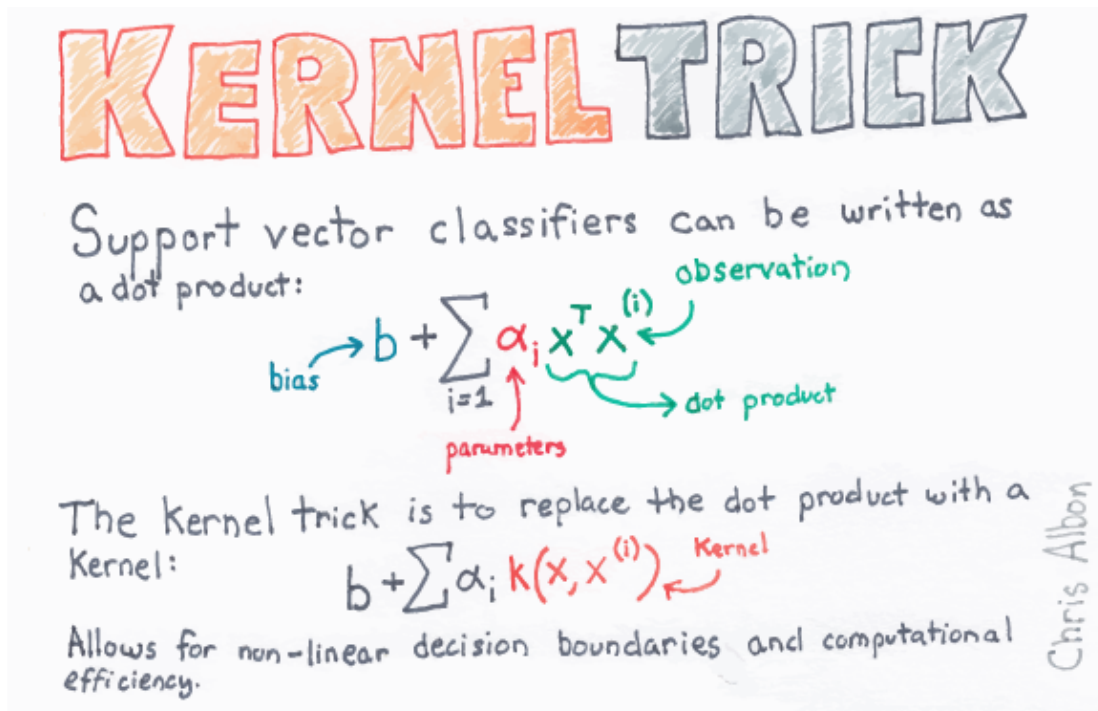 KERNEL TRICK
Support vector classifiers can be written as
a dot product:
observation
b + ∑ αᵢ xᵀ x⁽ⁱ⁾
i=1
bias
dot product
parameters
The Kernel trick is to replace the dot product with a
Kernel:
b + ∑ αᵢ k(x, x⁽ⁱ⁾)
Kernel
Allows for non-linear decision boundaries and computational
efficiency.
Chris Albon